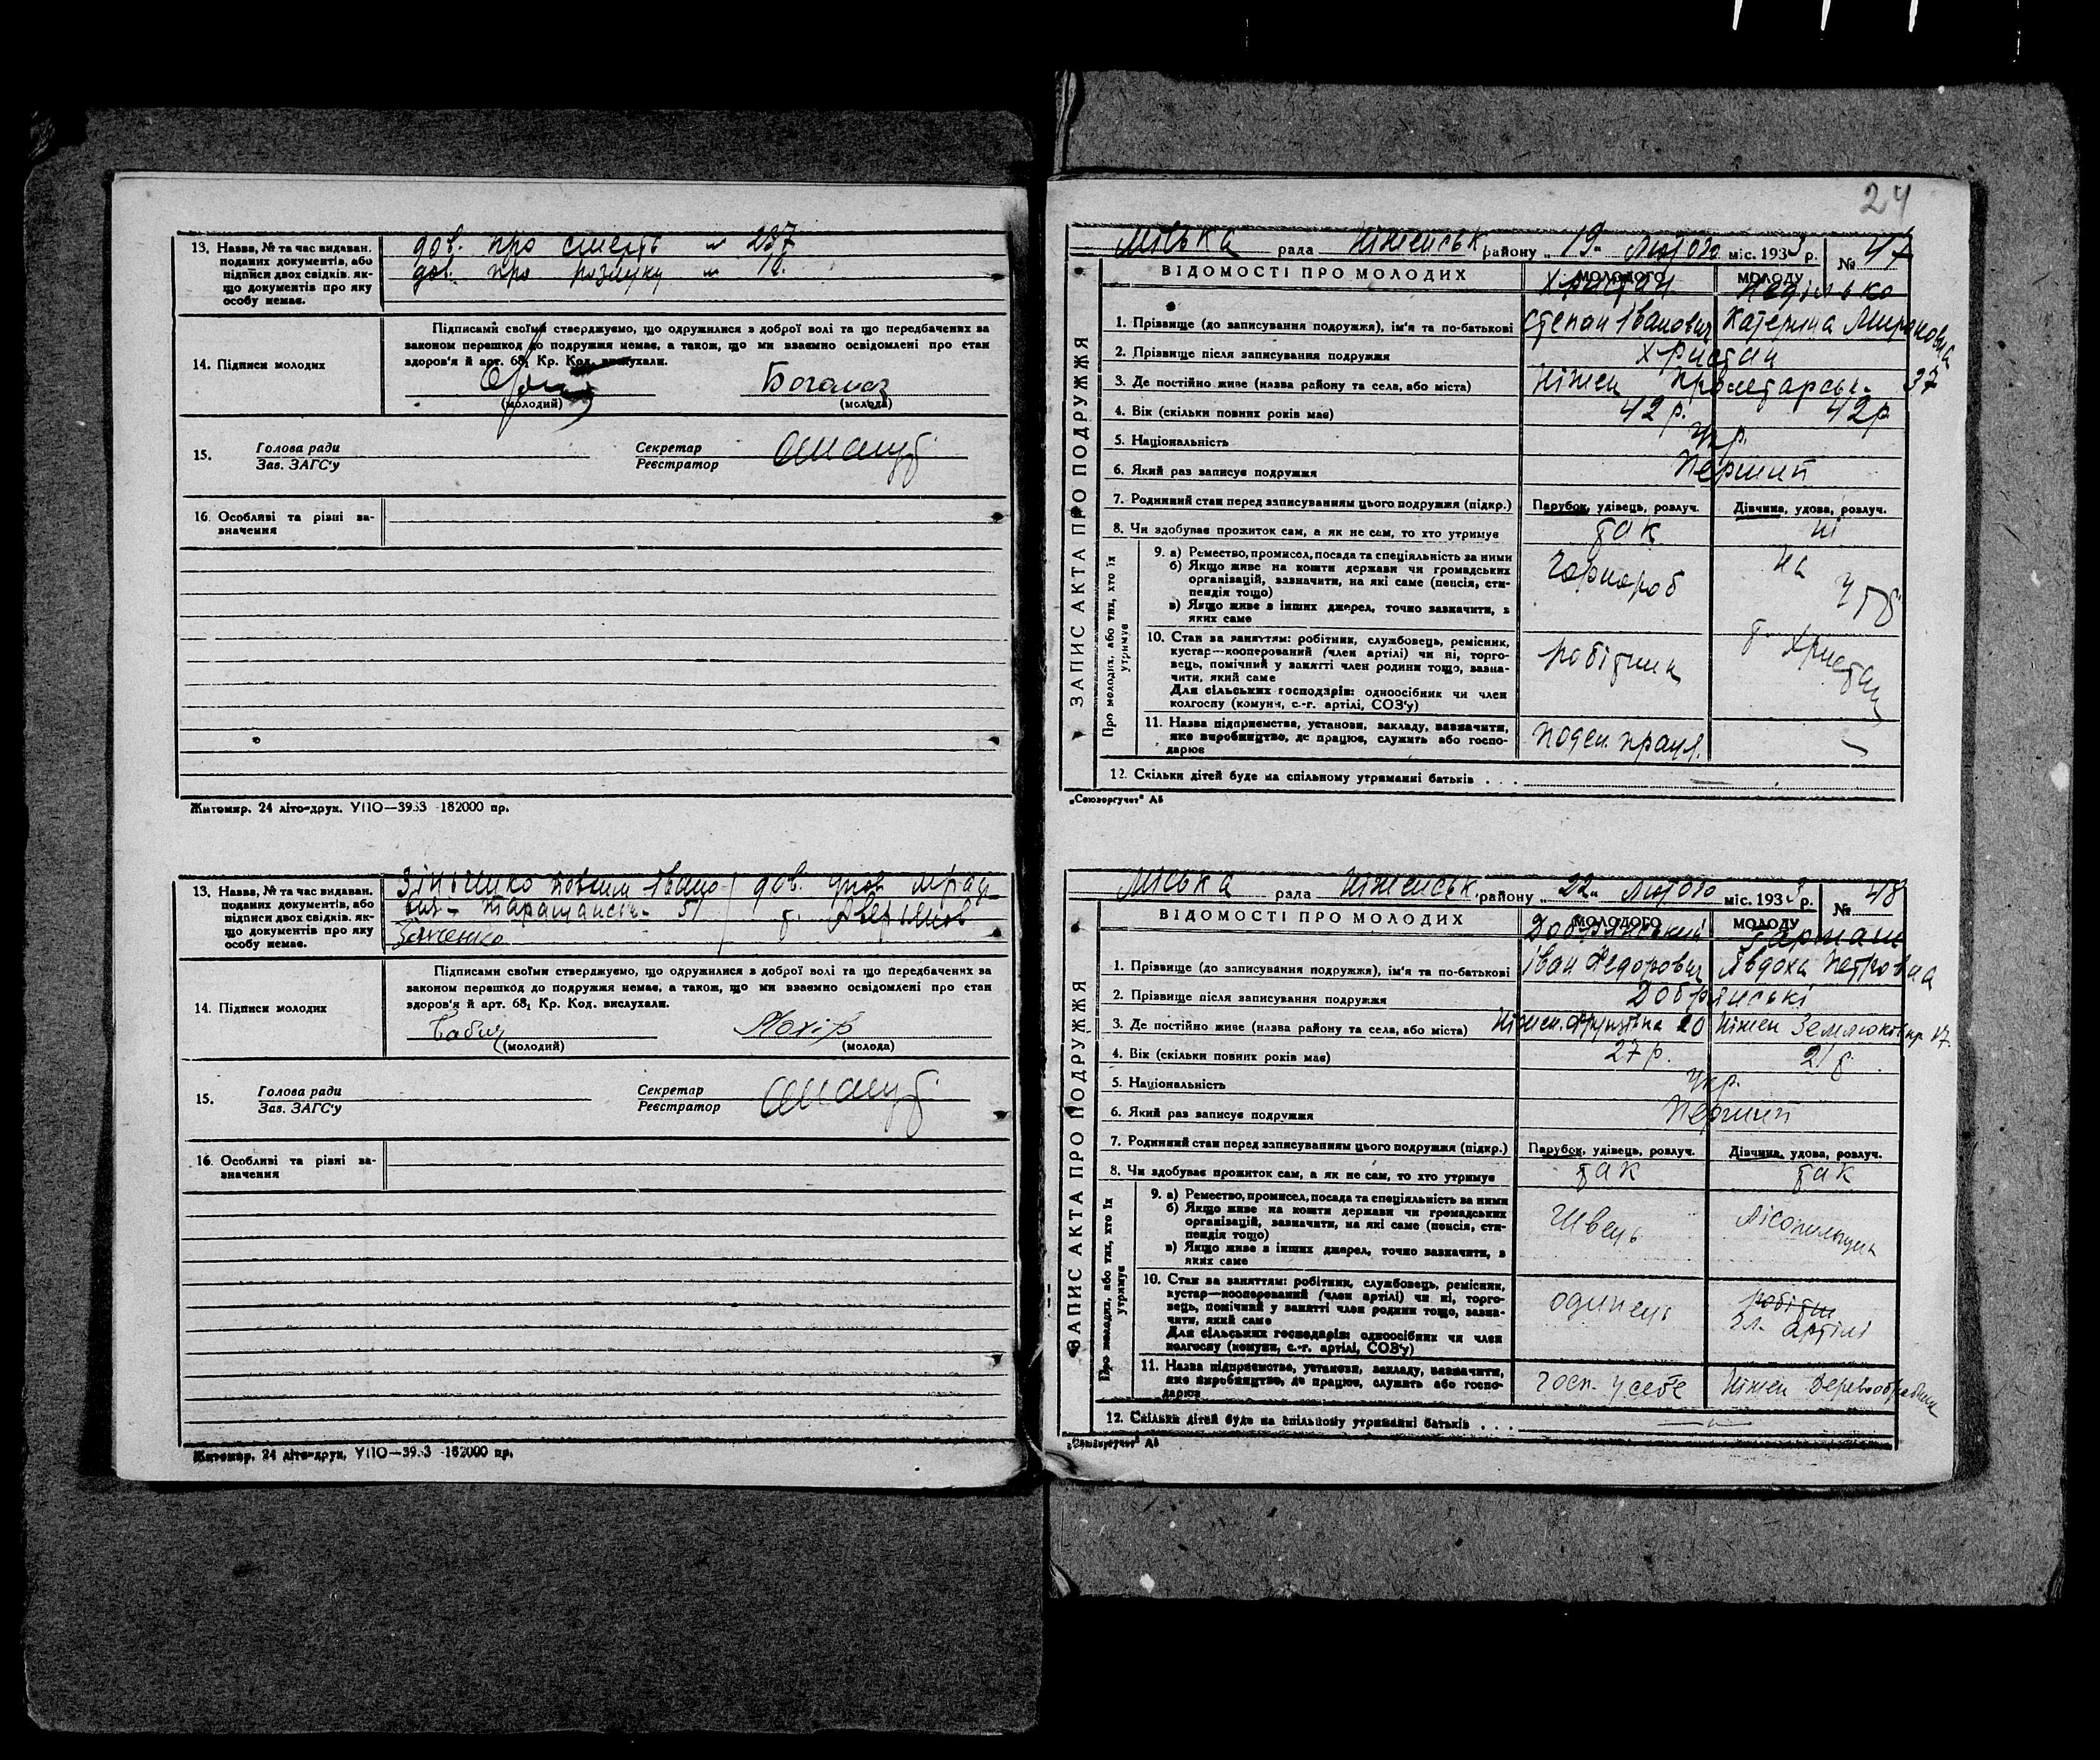 13. Назва, № та час видаван.
поданих документів, або
підписи двох свідків. як-
що документів про яку
особу немає.
дов. про смерть № 237
дов. про розлуку № 12.
14. Підписи молодих
Підписами своїми стверджуємо, що одружилися з доброї волі та що передбачених за
законом перешкод до подружжя немає, а також, що ми взаємно освідомлені про стан
здоров'я й арт. 68, Кр. Код. вислухали.
Богомаз
(молодий) (молода)
15.
Голова ради
Зав. ЗАГС'у
Секретар
Реєстратор
16. Особливі та різні за-
значення
Житомир. 24 літо-друк. УПО—3933 -182000 пр.
13. Назва, № та час видаван.
поданих документів, або
підписи двох свідків. як-
що документів про яку
особу немає.
дов.
51
14. Підписи молодих
Підписами своїми стверджуємо, що одружилися з доброї волі та що передбачених за
законом перешкод до подружжя немає, а також, що ми взаємно освідомлені про стан
здоров'я й арт. 68, Кр. Код. вислухали.
Бабич
(молодий) (молода)
15.
Голова ради
Зав. ЗАГС'у
Секретар
Реєстратор
16. Особливі та різні за-
значення
Житомир. 24 літо-друк. УПО—3933 -182000 пр.
24
Міська рада Ніженськ району „19" Лютого міс. 1933 р. № 47
ЗАПИС АКТА ПРО ПОДРУЖЖЯ
ВІДОМОСТІ ПРО МОЛОДИХ МОЛОДОГО МОЛОДУ
Христан
1. Прізвище (до записування подружжя), ім'я та по-батькові Степан Іванович Катерина Мироновна
2. Прізвище після записування подружжя Христан
3. Де постійно живе (назва району та села, або міста) Ніжен Пролетарськ. 37
4. Вік (скільки повних років має) 42 р. 42 р
5. Національність Укр.
6. Який раз записує подружжя Перший
7. Родинний стан перед записуванням цього подружжя (підкр.) Парубок, удівець, розлуч. Дівчина, удова, розлуч.
8. Чи здобуває прожиток сам, а як не сам, то хто утримує так ні
Про молодих, або тих, хто їх утримує
9. а) Ремество, промисел, посада та спеціяльність за ними
б) Якщо живе на кошти держави чи громадських
організацій, зазначити, на які саме (пенсія, сти-
пендія тощо)
в) Якщо живе з інших джерел, точно зазначити, з
яких саме
Чорнороб
на утр
10. Стан за заняттям: робітник, службовець, ремісник,
кустар—кооперований (член артілі) чи ні, торго-
вець, помічний у занятті член родини тощо, зазна-
чити, який саме
Для сільських господарів: одноосібник чи член
колгоспу (комуни, с.-г. артілі, СОЗ'у)
робітник
т. Христан
11. Назва підприємства, установи, закладу, зазначити,
яке виробництво, де працює, служить або госпо-
дарює
поден. прац. —
12. Скільки дітей буде на спільному утриманні батьків . . .
„Союзоргучет" А5
Міська рада Ніженськ району „22" Лютого міс. 1933 р. № 48
ЗАПИС АКТА ПРО ПОДРУЖЖЯ
ВІДОМОСТІ ПРО МОЛОДИХ МОЛОДОГО МОЛОДУ
Добрянський Гармаш
1. Прізвище (до записування подружжя), ім'я та по-батькові Іван Федорович Явдоха Петровна
2. Прізвище після записування подружжя Добрянські
3. Де постійно живе (назва району та села, або міста) Ніжен. 20 Ніжен 17.
4. Вік (скільки повних років має) 27 р. 21 р.
5. Національність Укр.
6. Який раз записує подружжя Перший
7. Родинний стан перед записуванням цього подружжя (підкр.) Парубок, удівець, розлуч. Дівчина, удова, розлуч.
8. Чи здобуває прожиток сам, а як не сам, то хто утримує так так
Про молодих, або тих, хто їх утримує
9. а) Ремество, промисел, посада та спеціяльність за ними
б) Якщо живе на кошти держави чи громадських
організацій, зазначити, на які саме (пенсія, сти-
пендія тощо)
в) Якщо живе з інших джерел, точно зазначити, з
яких саме
Швець
10. Стан за заняттям: робітник, службовець, ремісник,
кустар—кооперований (член артілі) чи ні, торго-
вець, помічний у занятті член родини тощо, зазна-
чити, який саме
Для сільських господарів: одноосібник чи член
колгоспу (комуни, с.-г. артілі, СОЗ'у)
одинець
робітн
чл. артілі
11. Назва підприємства, установи, закладу, зазначити,
яке виробництво, де працює, служить або госпо-
дарює
госп. у себе Ніжен
12. Скільки дітей буде на спільному утриманні батьків . . .
„Союзоргучет" А5